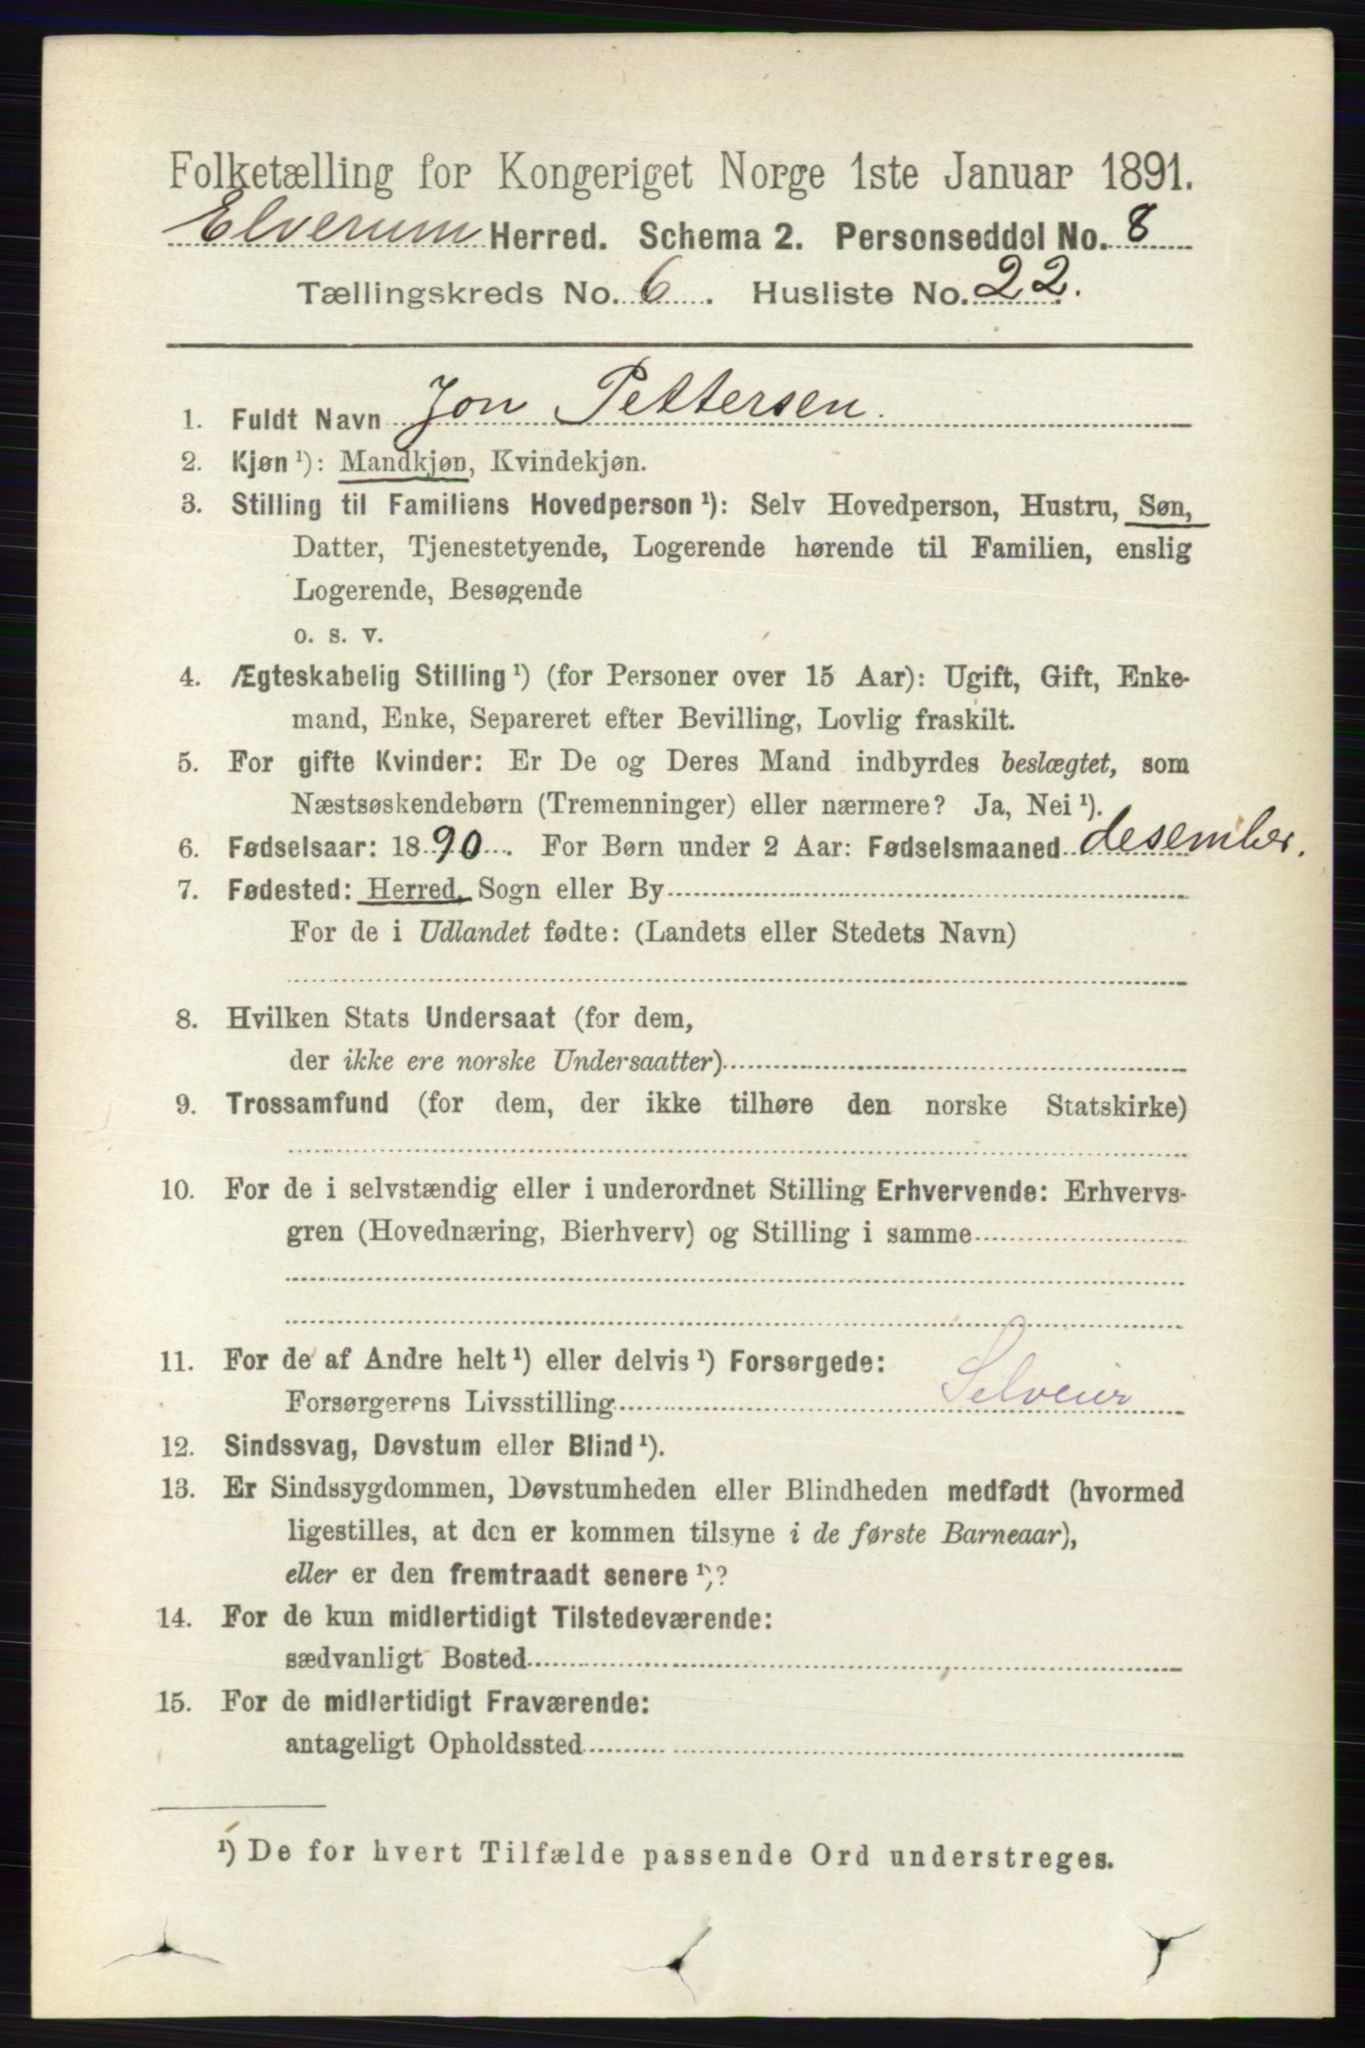 Folketælling for Kongeriget Norge 1ste Januar 1891.
Elverum Herred. Schema 2. Personseddel No. 8
Tællingskreds No. 6. Husliste No. 22.
1. Fuldt Navn Jon Pettersen.
2. Kjøn ¹): Mandkjøn, Kvindekjøn.
3. Stilling til Familiens Hovedperson ¹): Selv Hovedperson, Hustru, Søn,
Datter, Tjenestetyende, Logerende hørende til Familien, enslig
Logerende, Besøgende
o. s. v.
4. Ægteskabelig Stilling ¹) (for Personer over 15 Aar): Ugift, Gift, Enke-
mand, Enke, Separeret efter Bevilling, Lovlig fraskilt.
5. For gifte Kvinder: Er De og Deres Mand indbyrdes beslægtet, som
Næstsøskendebørn (Tremenninger) eller nærmere? Ja, Nei ¹).
6. Fødselsaar: 1890. For Børn under 2 Aar: Fødselsmaaned desember.
7. Fødested: Herred, Sogn eller By
For de i Udlandet fødte: (Landets eller Stedets Navn)
8. Hvilken Stats Undersaat (for dem,
der ikke ere norske Undersaatter)
9. Trossamfund (for dem, der ikke tilhøre den norske Statskirke)
10. For de i selvstændig eller i underordnet Stilling Erhvervende: Erhvervs-
gren (Hovednæring, Bierhverv) og Stilling i samme
11. For de af Andre helt ¹) eller delvis ¹) Forsørgede:
Forsørgerens Livsstilling Selveier
12. Sindssvag, Døvstum eller Blind ¹).
13. Er Sindssygdommen, Døvstumheden eller Blindheden medfødt (hvormed
ligestilles, at den er kommen tilsyne i de første Barneaar),
eller er den fremtraadt senere ¹)?
14. For de kun midlertidigt Tilstedeværende:
sædvanligt Bosted
15. For de midlertidigt Fraværende:
antageligt Opholdssted
¹) De for hvert Tilfælde passende Ord understreges.